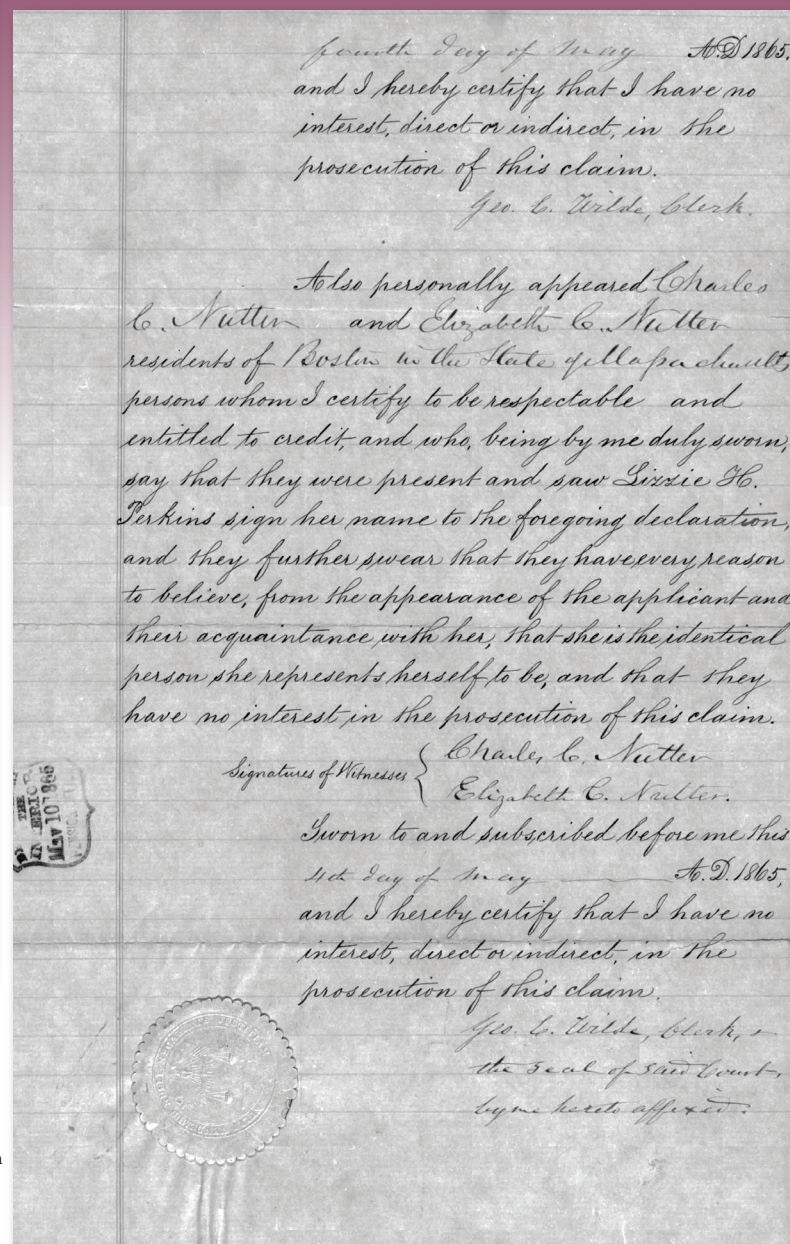 fourth day of May A.D 1865.
and I hereby certify that I have no
interest, direct or indirect, in the
prosecution of this claim.
Geo. C. Wilde, Clerk.
Also personally appeared Charles
C. Nutter and Elizabeth C. Nutter
residents of Boston in the State of Massachusetts,
persons whom I certify to be respectable and
entitled to credit, and who, being by me duly sworn,
say that they were present and saw Lizzie H.
Perkins sign her name to the foregoing declaration,
and they further swear that they have every reason
to believe, from the appearance of the applicant and
their acquaintance with her, that she is the identical
person she represents herself to be, and that they
have no interest in the prosecution of this claim.
Signatures of Witnesses { Charles C. Nutter
Elizabeth C. Nutter.
Sworn to and subscribed before me this
4th day of May A.D. 1865,
and I hereby certify that I have no
interest, direct or indirect, in the
prosecution of this claim.
Geo. C. Wilde, Clerk, &
the seal of said Court,
by me hereto affixed.
THE
MAY 10 1865